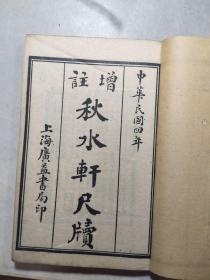 中華民國四年
增註
秋水軒尺牘
上海廣益書局印